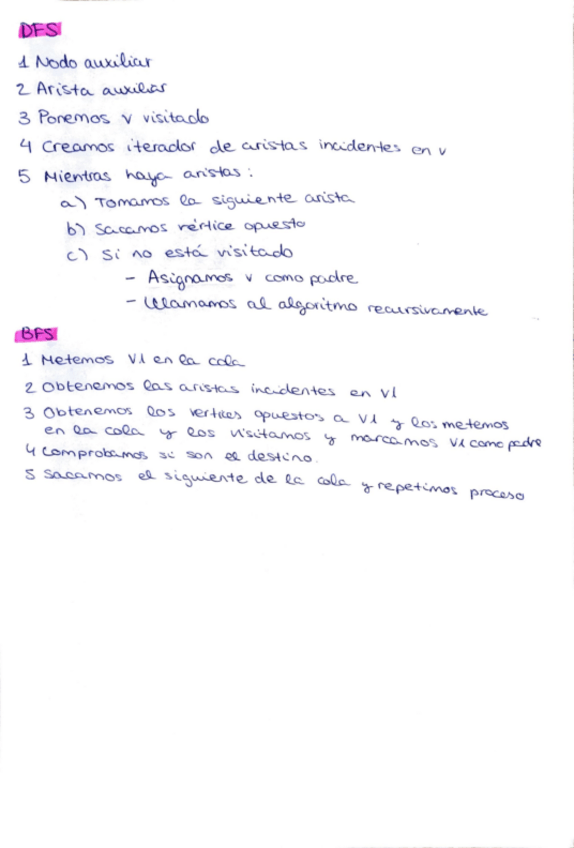 DFS
1 Nodo auxiliar
2 Arista auxiliar
3 Ponemos v visitado
4 Creamos iterador de aristas incidentes en v
5 Mientras haya aristas:
a) Tomamos la siguiente arista
b) Sacamos vértice opuesto
c) Si no está visitado
- Asignamos v como padre
- Llamamos al algoritmo recursivamente
BFS
1 Metemos V1 en la cola
2 Obtenemos las aristas incidentes en V1
3 Obtenemos los vertices opuestos a V1 y los metemos
en la cola y los visitamos y marcamos V1 como padre
4 Comprobamos si son el destino.
5 Sacamos el siguiente de la cola y repetimos proceso